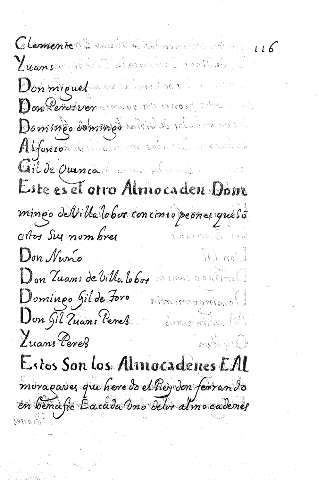 Clemente
116
Yuans
Don miguel
Don Peñosver
Domingo domingo
Alfonzo
Gil de Quenca
Este es el otro Almocaden Dom
mingo de Villa lobos con cinco peones que Sō
estos Sus nombres
Don Nuño
Don Iuans de Villa lobos
Domingo Gil de Toro
Don Gil Iuans Peres
Yuans Peres
Estos Son los Almocadenes E Al
mogavares que heredo el Rey don ferrando
en benafre E a cada Uno de los almocadenes